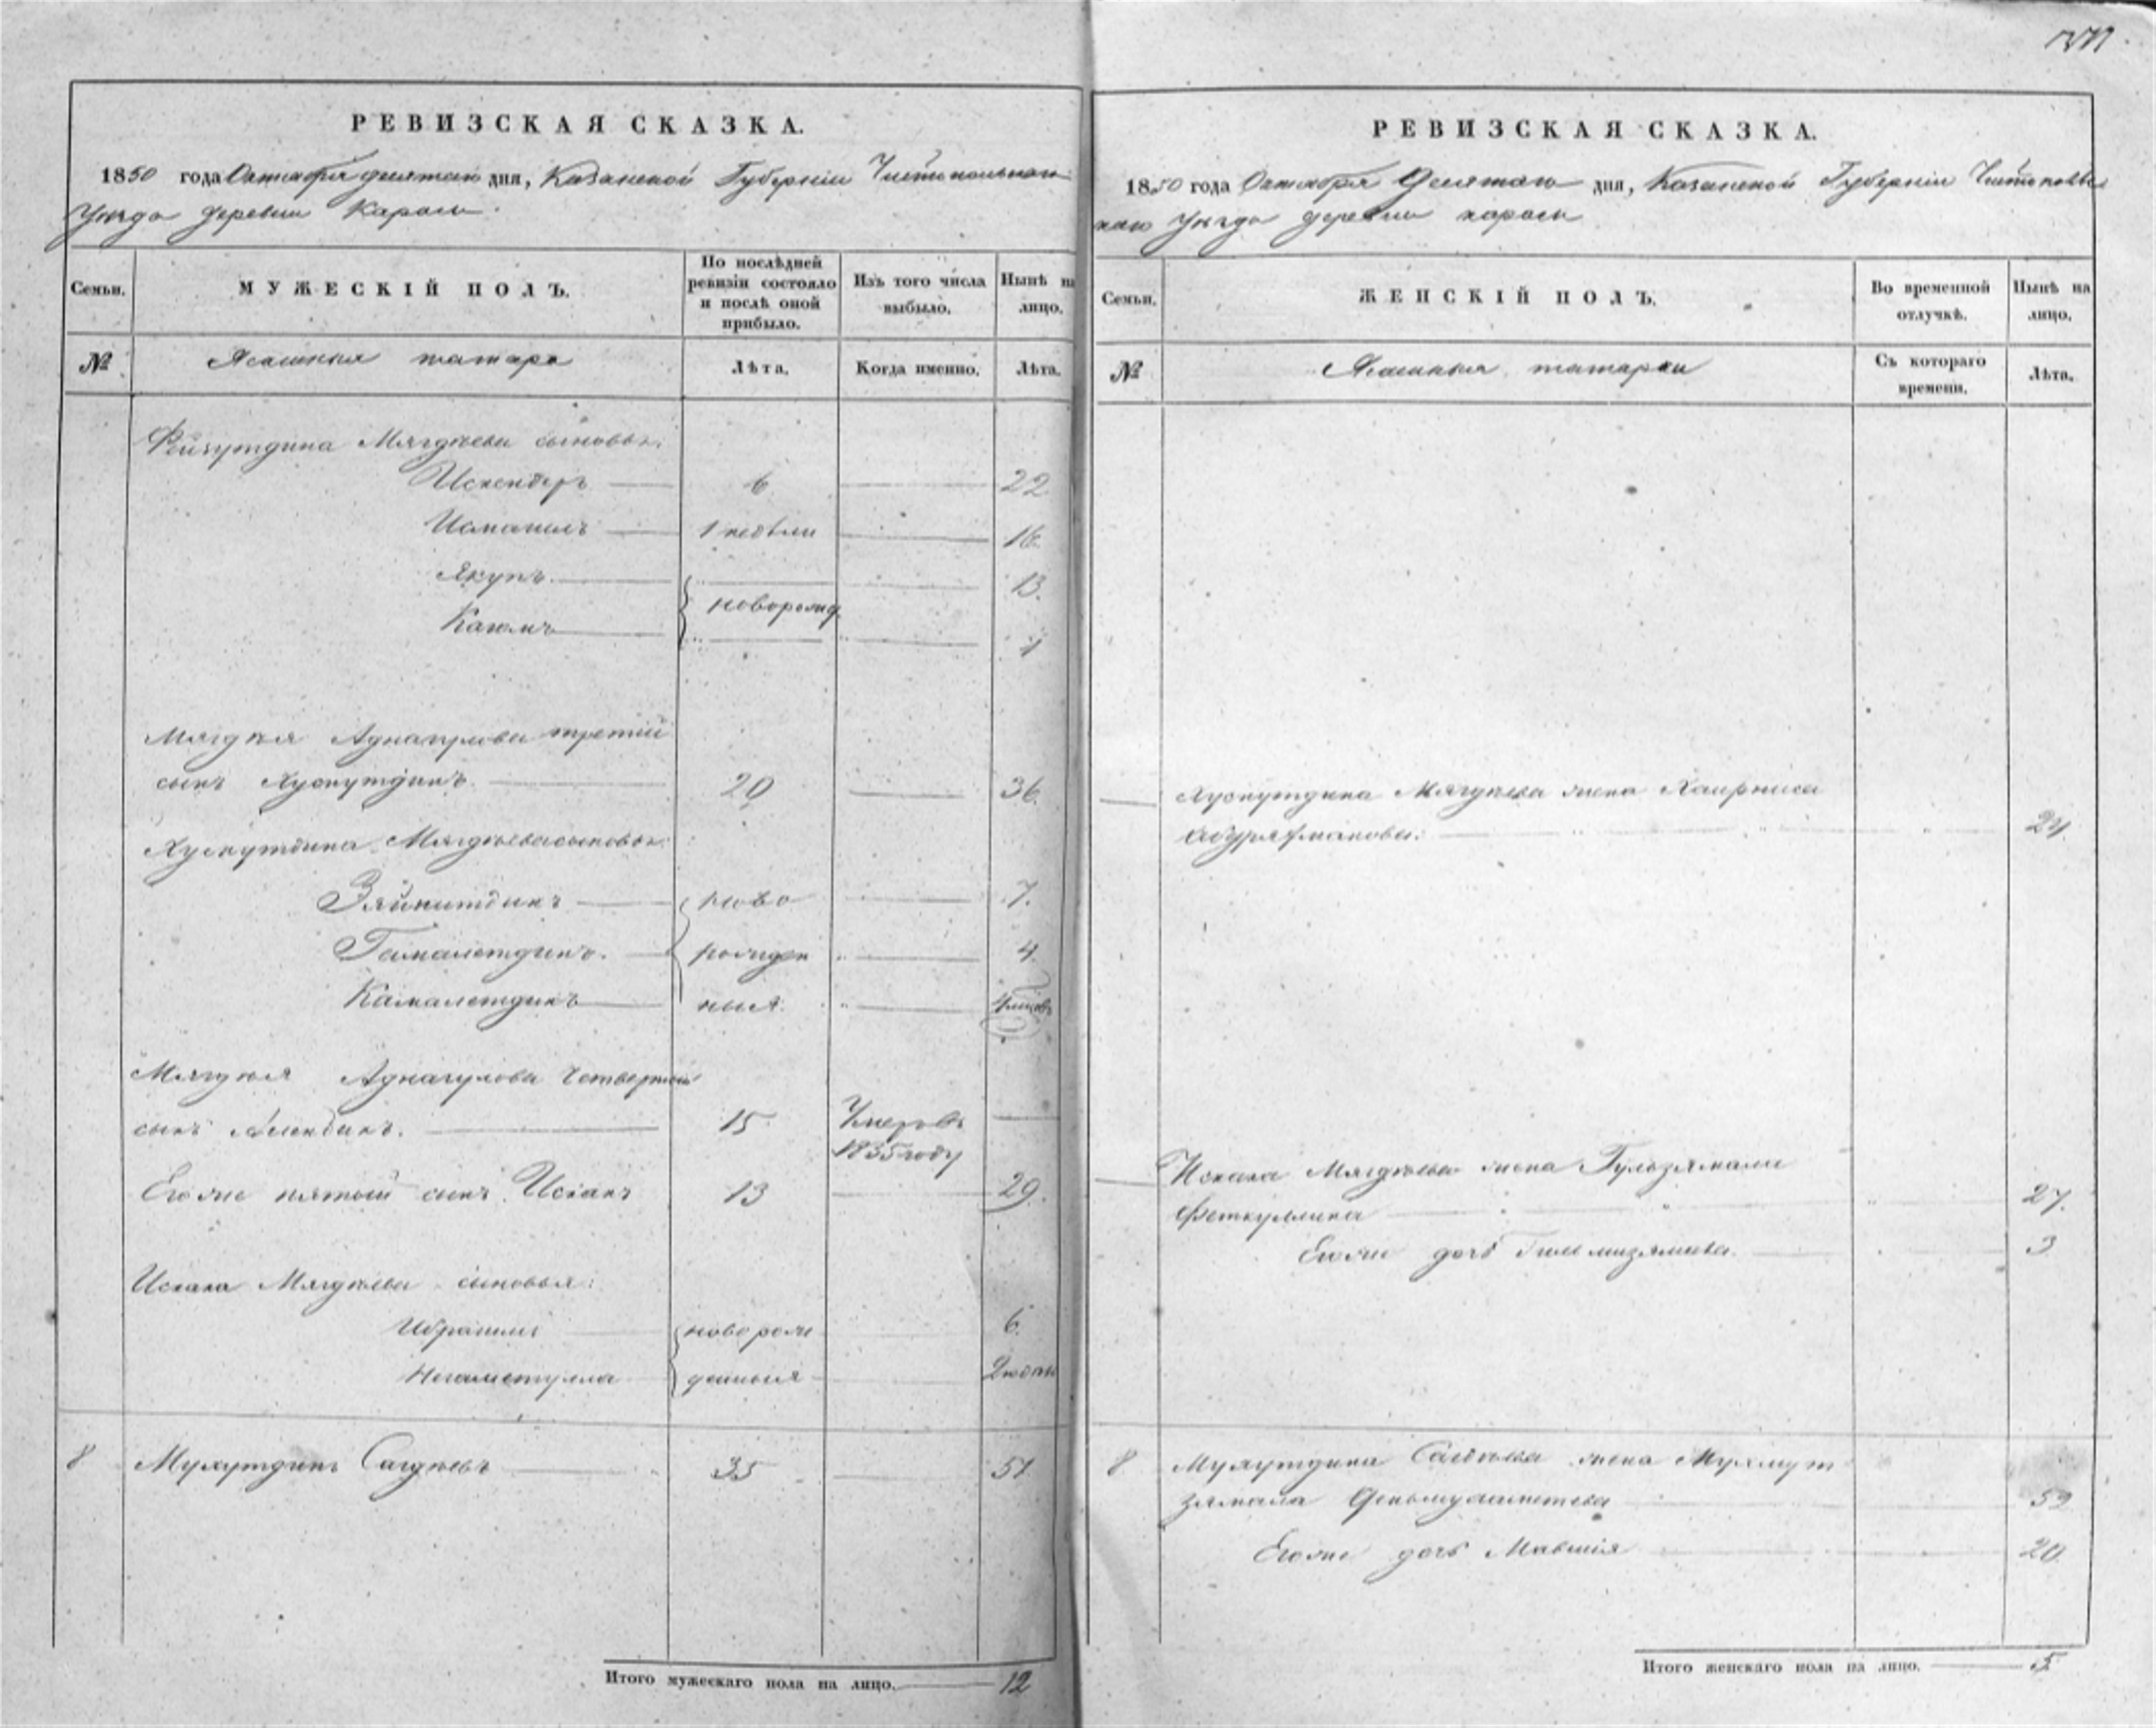 РЕВИЗСКАЯ СКАЗКА.
1850 года Октября десятаго дня, Казанской Губерніи Чистопольскаго
Уезда деревни Карасы
Семьи.
МУЖЕСКІЙ ПОЛЪ.
По послѣдней ревизіи состояло и послѣ оной прибыло.
Изъ того числа выбыло.
Нынѣ на лицо.
№
Ясашныя татара
Лѣта.
Когда именно.
Лѣта.
Мягдѣева сыновья:
Искендеръ 6 22
Исмаилъ 1 недѣли 16
Якупъ 13.
новорожд.
Каюмъ 1
Мягдѣя третій
сынъ Хуснутдинъ 20 36.
Хуснутдина Мягдѣева сыновья:
Зяйнитдинъ ново 7.
Гамалетдинъ. рожден 4.
Камалетдинъ ныя
Мягдѣя четвертый
сынъ 15 Умеръ въ
1835 году
Егоже пятый сынъ Исхакъ 13 29.
Исхака Мягдѣева сыновья:
Ибрагимъ новорож 6.
Негаметулла денныя
8 Мухутдинъ Сагдѣевъ 35 51
Итого мужескаго пола на лицо. 12
РЕВИЗСКАЯ СКАЗКА.
1850 года Октября Десятаго дня, Казанской Губерніи Чистополь
скаго Уезда деревни карасы
Семьи.
ЖЕНСКІЙ ПОЛЪ.
Во временной отлучкѣ.
Нынѣ на лицо.
№
Ясашныя татарки
Съ котораго времени.
Лѣта.
Хуснутдина Мягдѣева жена Хаирниса
Абдряхманова. 24
Исхака Мягдѣева жена Гульзямали
Феткуллина 27.
Егоже дочь 3
8 Мухутдина Сагдѣева жена
зямала 59
Егоже дочь 20
Итого женскаго пола на лицо. 5